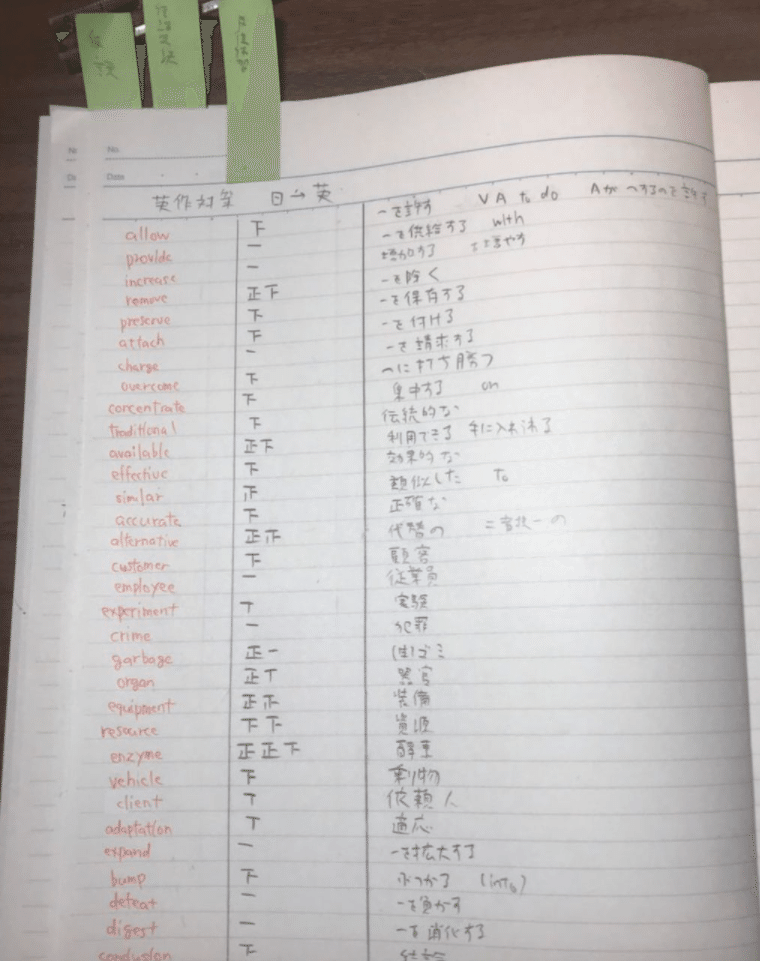 No.
Date
英作対策 日→英
allow 下 〜を許す V A to do Aが〜するのを許す
provide 一 〜を供給する with
increase 一 増加する を増やす
remove 正下 〜を除く
preserve 下 〜を保存する
attach 下 〜を付ける
charge 一 〜を請求する
overcome 下 〜に打ち勝つ
concentrate 下 集中する on
traditional 下 伝統的な
available 正下 利用できる 手に入れられる
effective 下 効果的な
similar 正 類似した to
accurate 下 正確な
alternative 正正 代替の 二者択一の
customer 下 顧客
employee 一 従業員
experiment T 実験
crime 一 犯罪
garbage 正一 (生)ゴミ
organ 正T 器官
equipment 正正 装備
resource 下下 資源
enzyme 正正下 酵素
vehicle 下 乗物
client T 依頼人
adaptation T 適応
expand 一 〜を拡大する
bump 下 ぶつかる (into)
defeat 一 〜を負かす
digest 一 〜を消化する
conclusion 下 結論